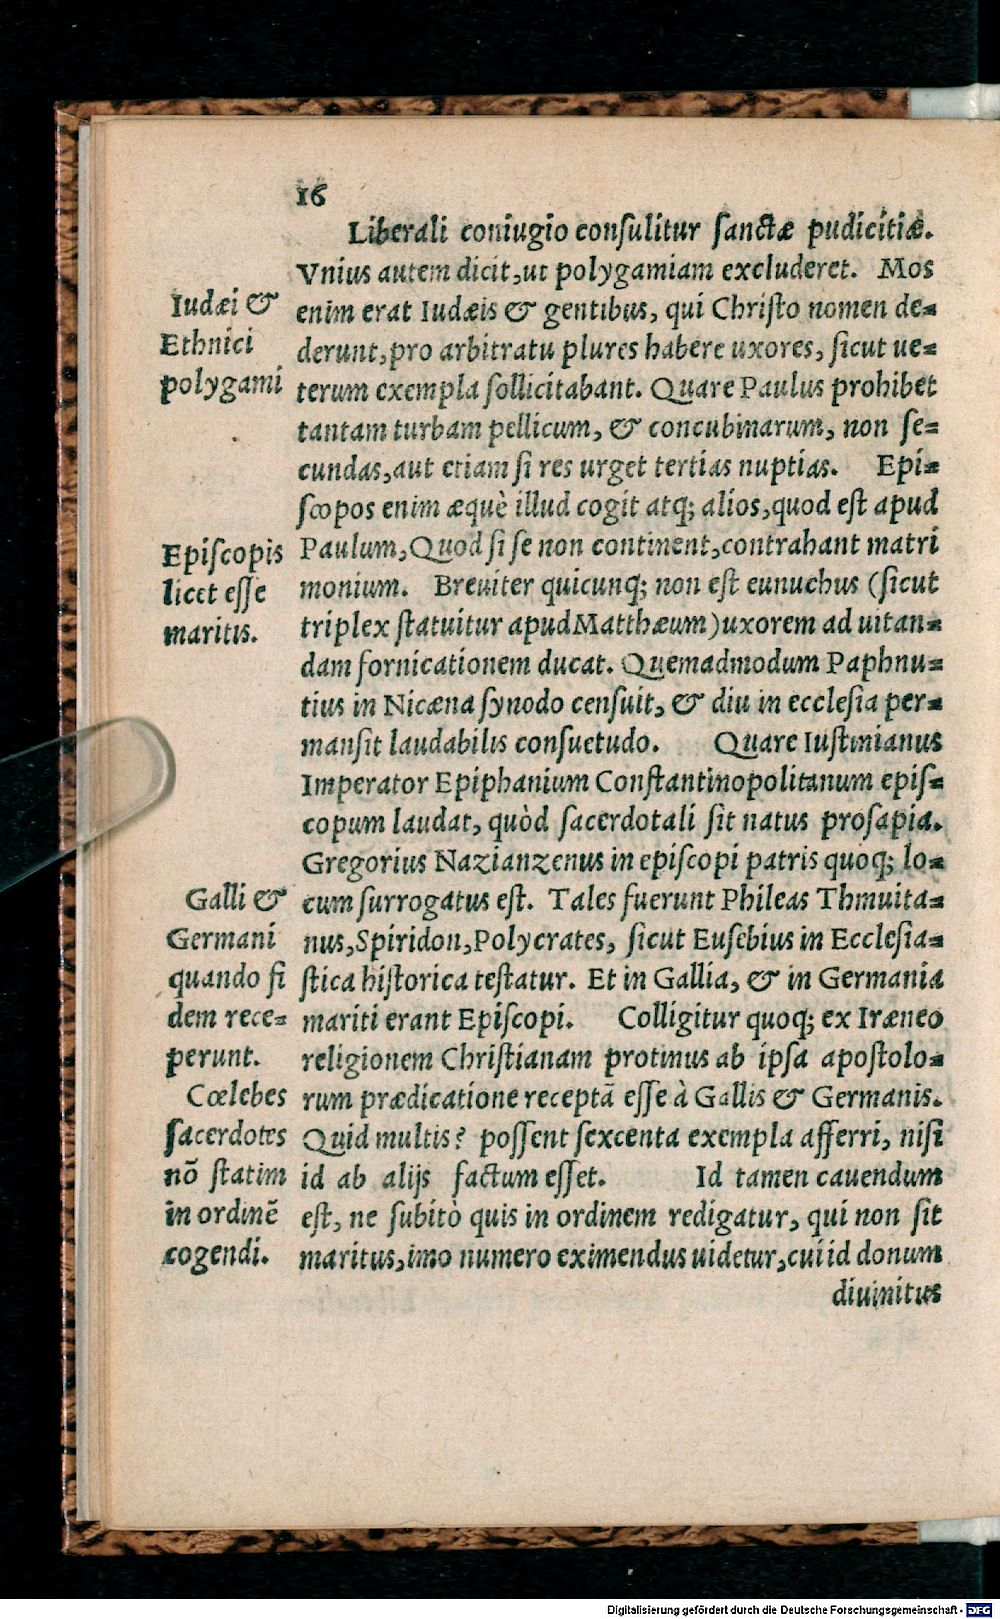 16
Liberali coniugio consulitur sanctæ pudicitiæ.
Vnius autem dicit, ut polygamiam excluderet. Mos
enim erat Iudæis & gentibus, qui Christo nomen de=
derunt, pro arbitratu plures habere uxores, sicut ue=
terum exempla sollicitabant. Quare Paulus prohibet
tantam turbam pellicum, & concubinarum, non se=
cundas, aut etiam si res urget tertias nuptias. Epi=
scopos enim æquè illud cogit atq; alios, quod est apud
Paulum, Quod si se non continent, contrahant matri
monium. Breuiter quicunq; non est eunuchus (sicut
triplex statuitur apud Matthæum) uxorem ad uitan=
dam fornicationem ducat. Quemadmodum Paphnu=
tius in Nicæna synodo censuit, & diu in ecclesia per=
mansit laudabilis consuetudo. Quare Iustinianus
Imperator Epiphanium Constantinopolitanum epis=
copum laudat, quòd sacerdotali sit natus prosapia.
Gregorius Nazianzenus in episcopi patris quoq; lo=
cum surrogatus est. Tales fuerunt Phileas Thmuita=
nus, Spiridon, Polycrates, sicut Eusebius in Ecclesia=
stica historica testatur. Et in Gallia, & in Germania
mariti erant Episcopi. Colligitur quoq; ex Iræneo
religionem Christianam protinus ab ipsa apostolo=
rum prædicatione receptã esse à Gallis & Germanis.
Quid multis? possent sexcenta exempla afferri, nisi
id ab alijs factum esset. Id tamen cauendum
est, ne subitò quis in ordinem redigatur, qui non sit
maritus, imo numero eximendus uidetur, cui id donum
diuinitus
Iudæi &
Ethnici
polygami
Episcopis
licet esse
maritis.
Galli &
Germani
quando fi
dem rece=
perunt.
Cœlebes
sacerdotes
nõ statim
in ordinẽ
cogendi.
Digitalisierung gefördert durch die Deutsche Forschungsgemeinschaft - DFG